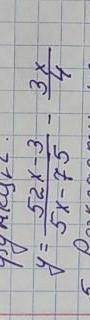 функции.
y = \frac{52x-3}{5x-75} - \frac{3x}{4}